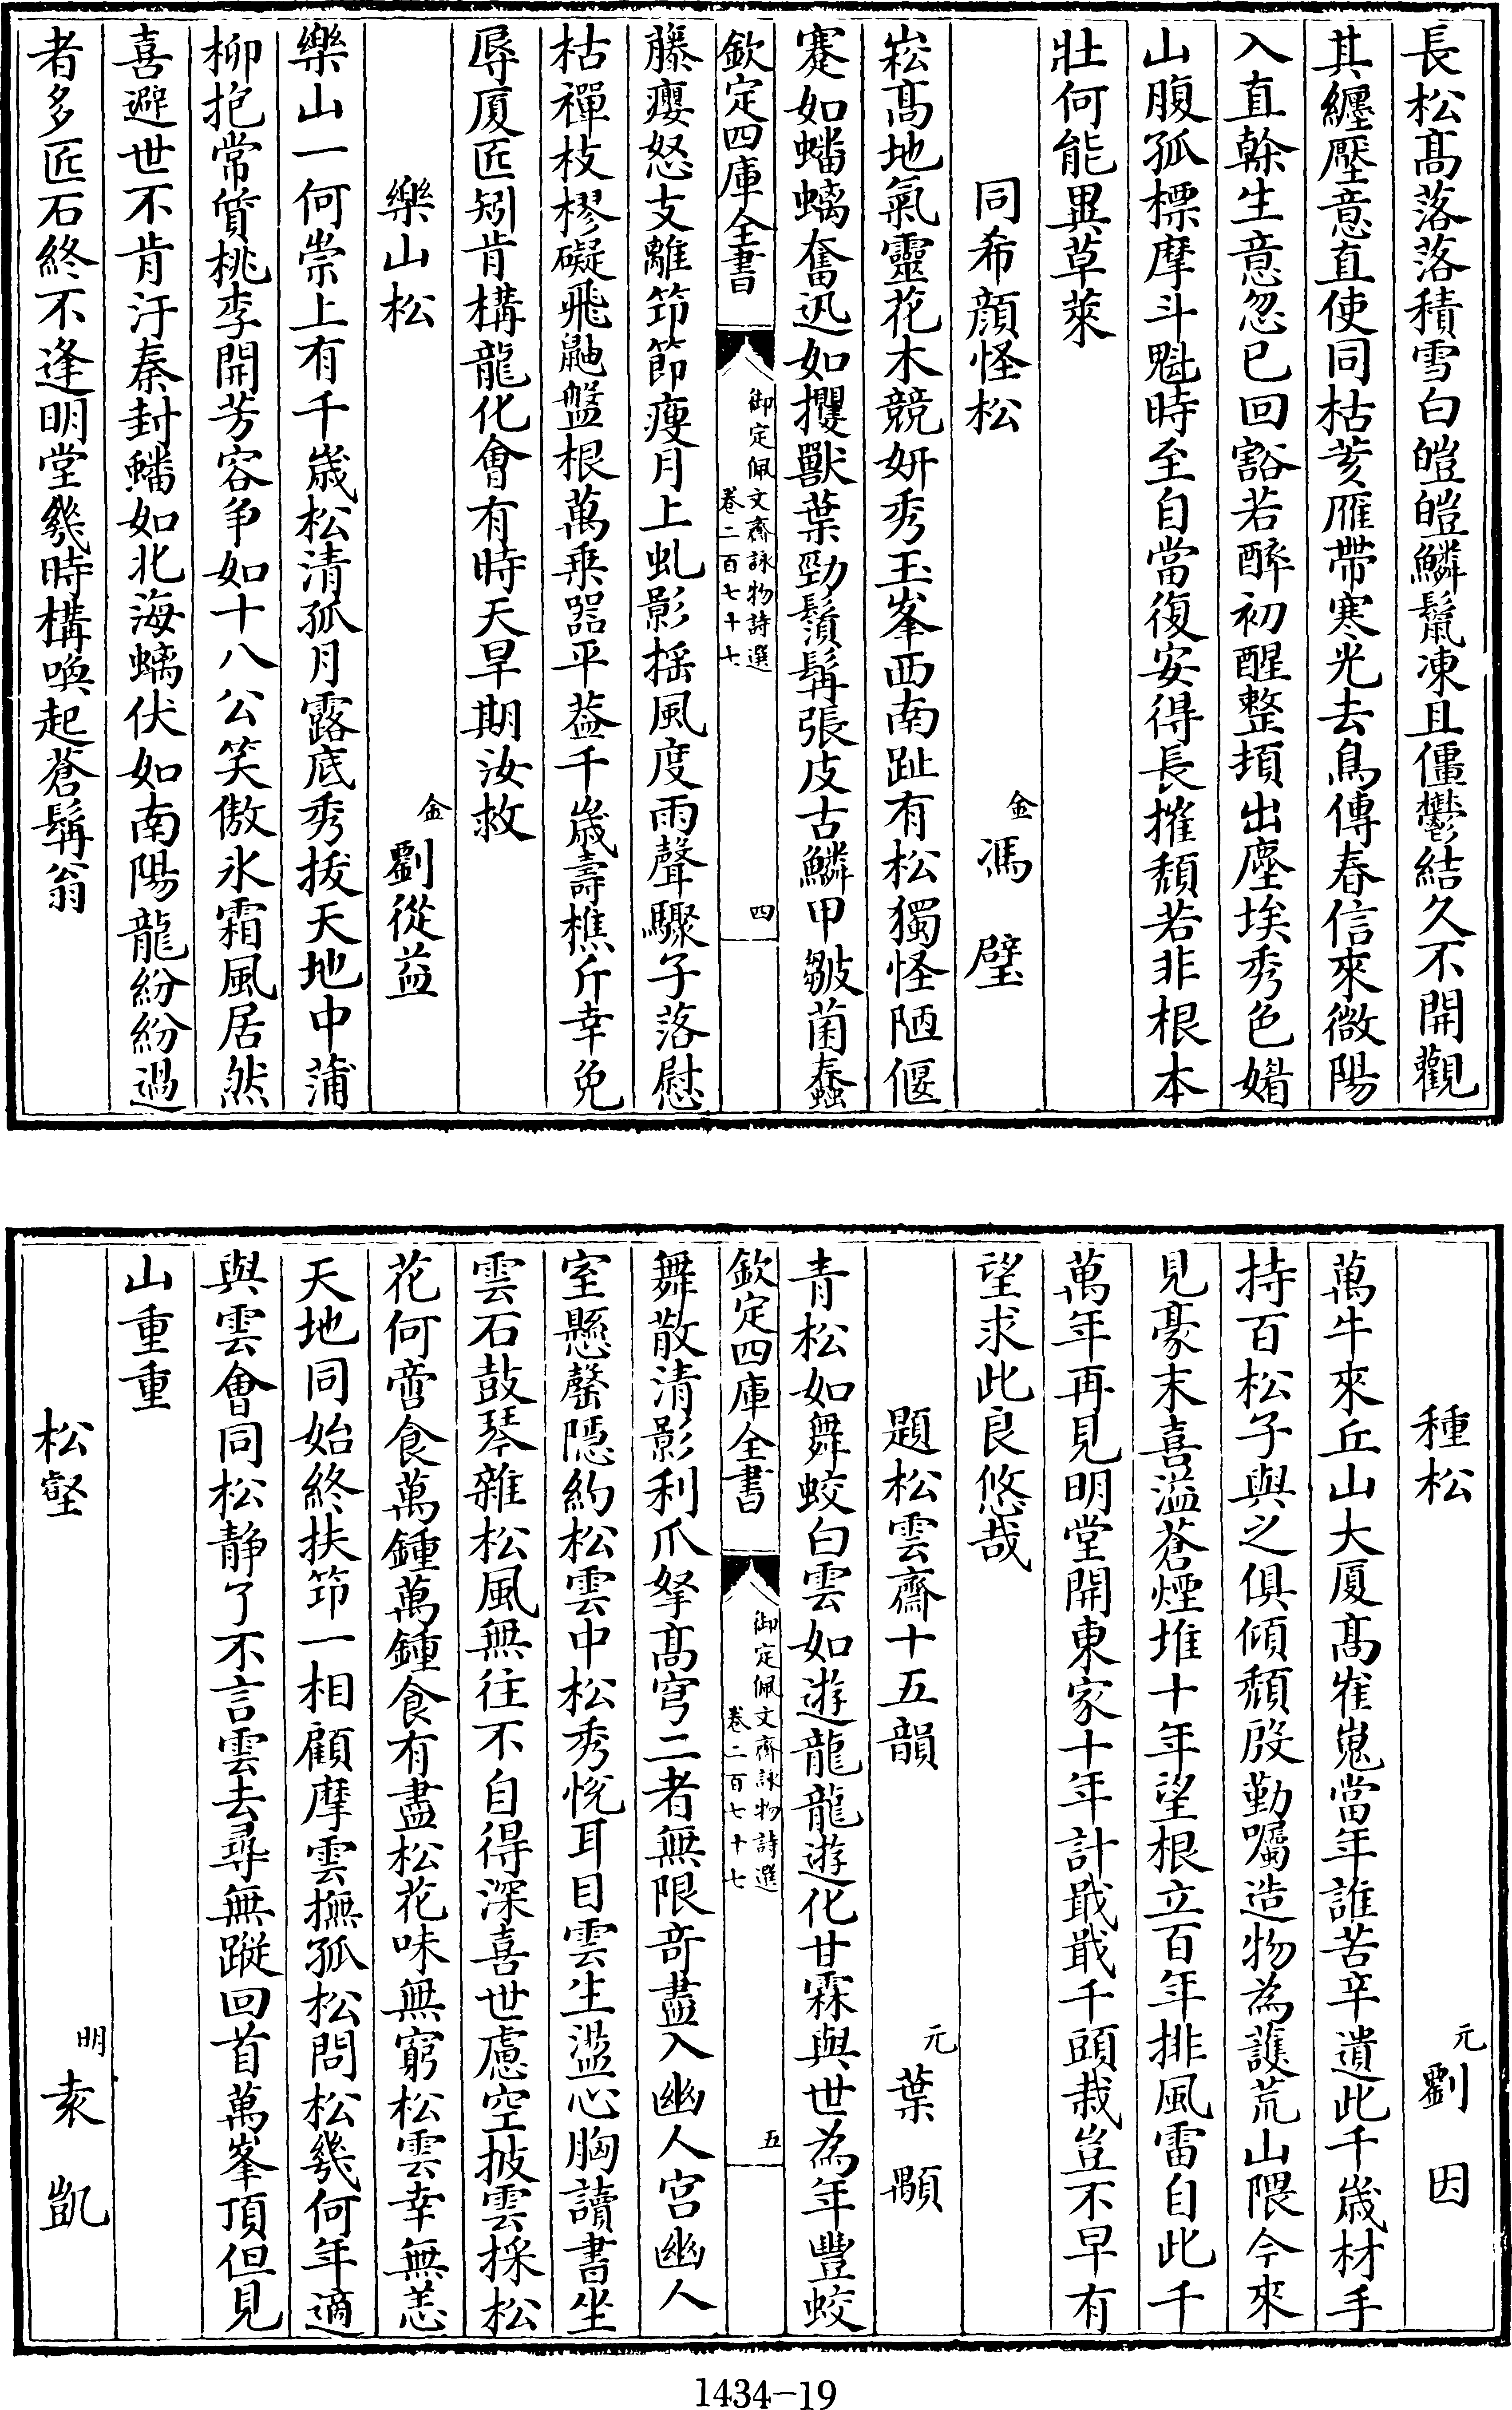 長松髙落落積雪白皚皚鱗鬛凍且僵鬱結久不開觀
其纏壓意直使同枯荄雁帶寒光去鳥傳春信來微陽
入直榦生意忽已回豁若醉初醒整頓出塵埃秀色媚
山腹孤標摩斗魁時至自當復安得長摧頽若非根本
壯何能異草萊
同希顔怪松
金馮璧
崧髙地氣靈花木競妍秀玉峯西南趾有松獨怪陋偃
蹇如蟠螭奮迅如攫獸葉勁鬚髯張皮古鱗甲皺菌蠢
欽定四庫全書
御定佩文齋詠物詩選
卷二百七十七
四
藤癭怒支離笻節瘦月上虬影揺風度雨聲驟子落慰
枯禪枝樛礙飛鼬盤根萬乘器平葢千歲壽樵斤幸免
辱厦匠矧肯構龍化會有時天旱期汝救
樂山松
金劉從益
樂山一何崇上有千歲松清孤月露底秀拔天地中蒲
柳抱常質桃李開芳容争如十八公笑傲氷霜風居然
喜避世不肯汙秦封蟠如北海螭伏如南陽龍紛紛過
者多匠石終不逢明堂幾時構喚起蒼髯翁
種松
元劉因
萬牛來丘山大厦髙崔嵬當年誰苦辛遺此千歲材手
持百松子與之俱傾頽殷勤囑造物為護荒山隈今來
見豪末喜溢蒼煙堆十年望根立百年排風雷自此千
萬年再見明堂開東家十年計戢戢千頭栽豈不早有
望求此良悠哉
題松雲齋十五韻
元葉顒
青松如舞蛟白雲如遊龍龍遊化甘霖與世為年豐蛟
欽定四庫全書
御定佩文齋詠物詩選
卷二百七十七
五
舞散清影利爪拏髙穹二者無限竒盡入幽人宫幽人
室懸罄隱約松雲中松秀恱耳目雲生盪心胸讀書坐
雲石鼓琴雜松風無往不自得深喜世慮空披雲採松
花何啻食萬鍾萬鍾食有盡松花味無窮松雲幸無恙
天地同始終扶笻一相顧摩雲撫孤松問松幾何年適
與雲會同松静了不言雲去尋無蹤回首萬峯頂但見
山重重
松壑
明袁凱
1434-19